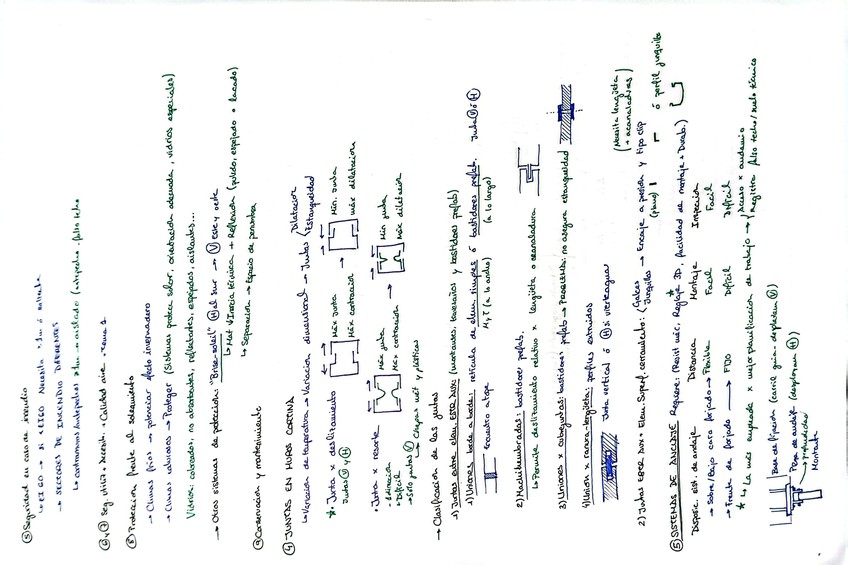 ⑤ Seguridad en caso de incendio
↳ EI 60 → Si < EI60 Necesita · 1m ó entrante
→ SECTORES DE INCENDIO DIFERENTES
↳ · aislado (antepecho · falso techo
⑥ y ⑦ Seg. utiliz. + Acust. · Calidad aire
⑧ Protección frente al soleamiento
→ Climas fríos → potenciar efecto invernadero
→ Climas calurosos → Proteger (Sistemas protecc. solar, orientación adecuada, vidrios especiales)
Vidrios: coloreados, no absorbentes, reflectantes, espejados, aislantes...
→ Otros sistemas de protección: "Brise-soleil" Ⓗ al sur → Ⓥ este y oeste
↳ Mat ↓ Inercia térmica + Reflexión (pulido, espejado o lacado)
↳ Separación → Espacio de penumbra
⑨ Conservación y mantenimiento
④ JUNTAS EN MUROS CORTINA
↳ Variación de temperatura → Variación dimensional → Juntas Dilatación
Estanqueidad
* · Junta x deslizamiento
Juntas Ⓥ y Ⓗ
Máx junta
Máx contracción
→
Mín. junta
máx dilatación
· Junta x resorte
- Difícil
- Sólo juntas Ⓥ
↳ Chapas met y plásticas
Máx junta
Máx contracción
→
Mín junta
Máx dilatación
→ Clasificación de las juntas
1) Juntas entre elem ESTR AUX: (montantes, travesaños y bastidores prefab)
1) Uniones borde a borde: retícula de elem simples ó bastidores prefab. Junta Ⓥ ó Ⓗ
M y T (a lo ancho) (a lo largo)
Encuentro a tope
2) Machihembradas: bastidores prefab.
↳ Permite deslizamiento relativo x lengüeta o acanaladura
3) Uniones x cubrejuntas: bastidores prefab → PROBLEMA: no asegura estanqueidad
4) Unión x ranura-lengüeta: perfiles extruidos
Junta vertical ó Ⓗ si vierteaguas
(Necesita lengüeta
+ acanaladuras)
2) Juntas ESTR AUX + Elem. Superf. cerramiento: (Galces
Junquillos → Encaje a presión y tipo clip
(plano) ó perfil junquillo
⑤ SISTEMAS DE ANCLAJE Requiere: (Resist mec, Reglaje 3D, facilidad de montaje + Durab.)
Disposic. sist. de anclaje Distancia Montaje Inspección
→ Sobre/Bajo cara forjado → Flexible Facil Facil
→ Frente de forjado → FIJO Dificil Dificil
* ↳ La más empleada x mejor planificación de trabajo → Acceso x andamio
Registro falso techo/suelo técnico
Base de fijación (carril guía - desplazam Ⓥ)
Pieza de anclaje (desplazam Ⓗ)
↳ profundidad
Montante